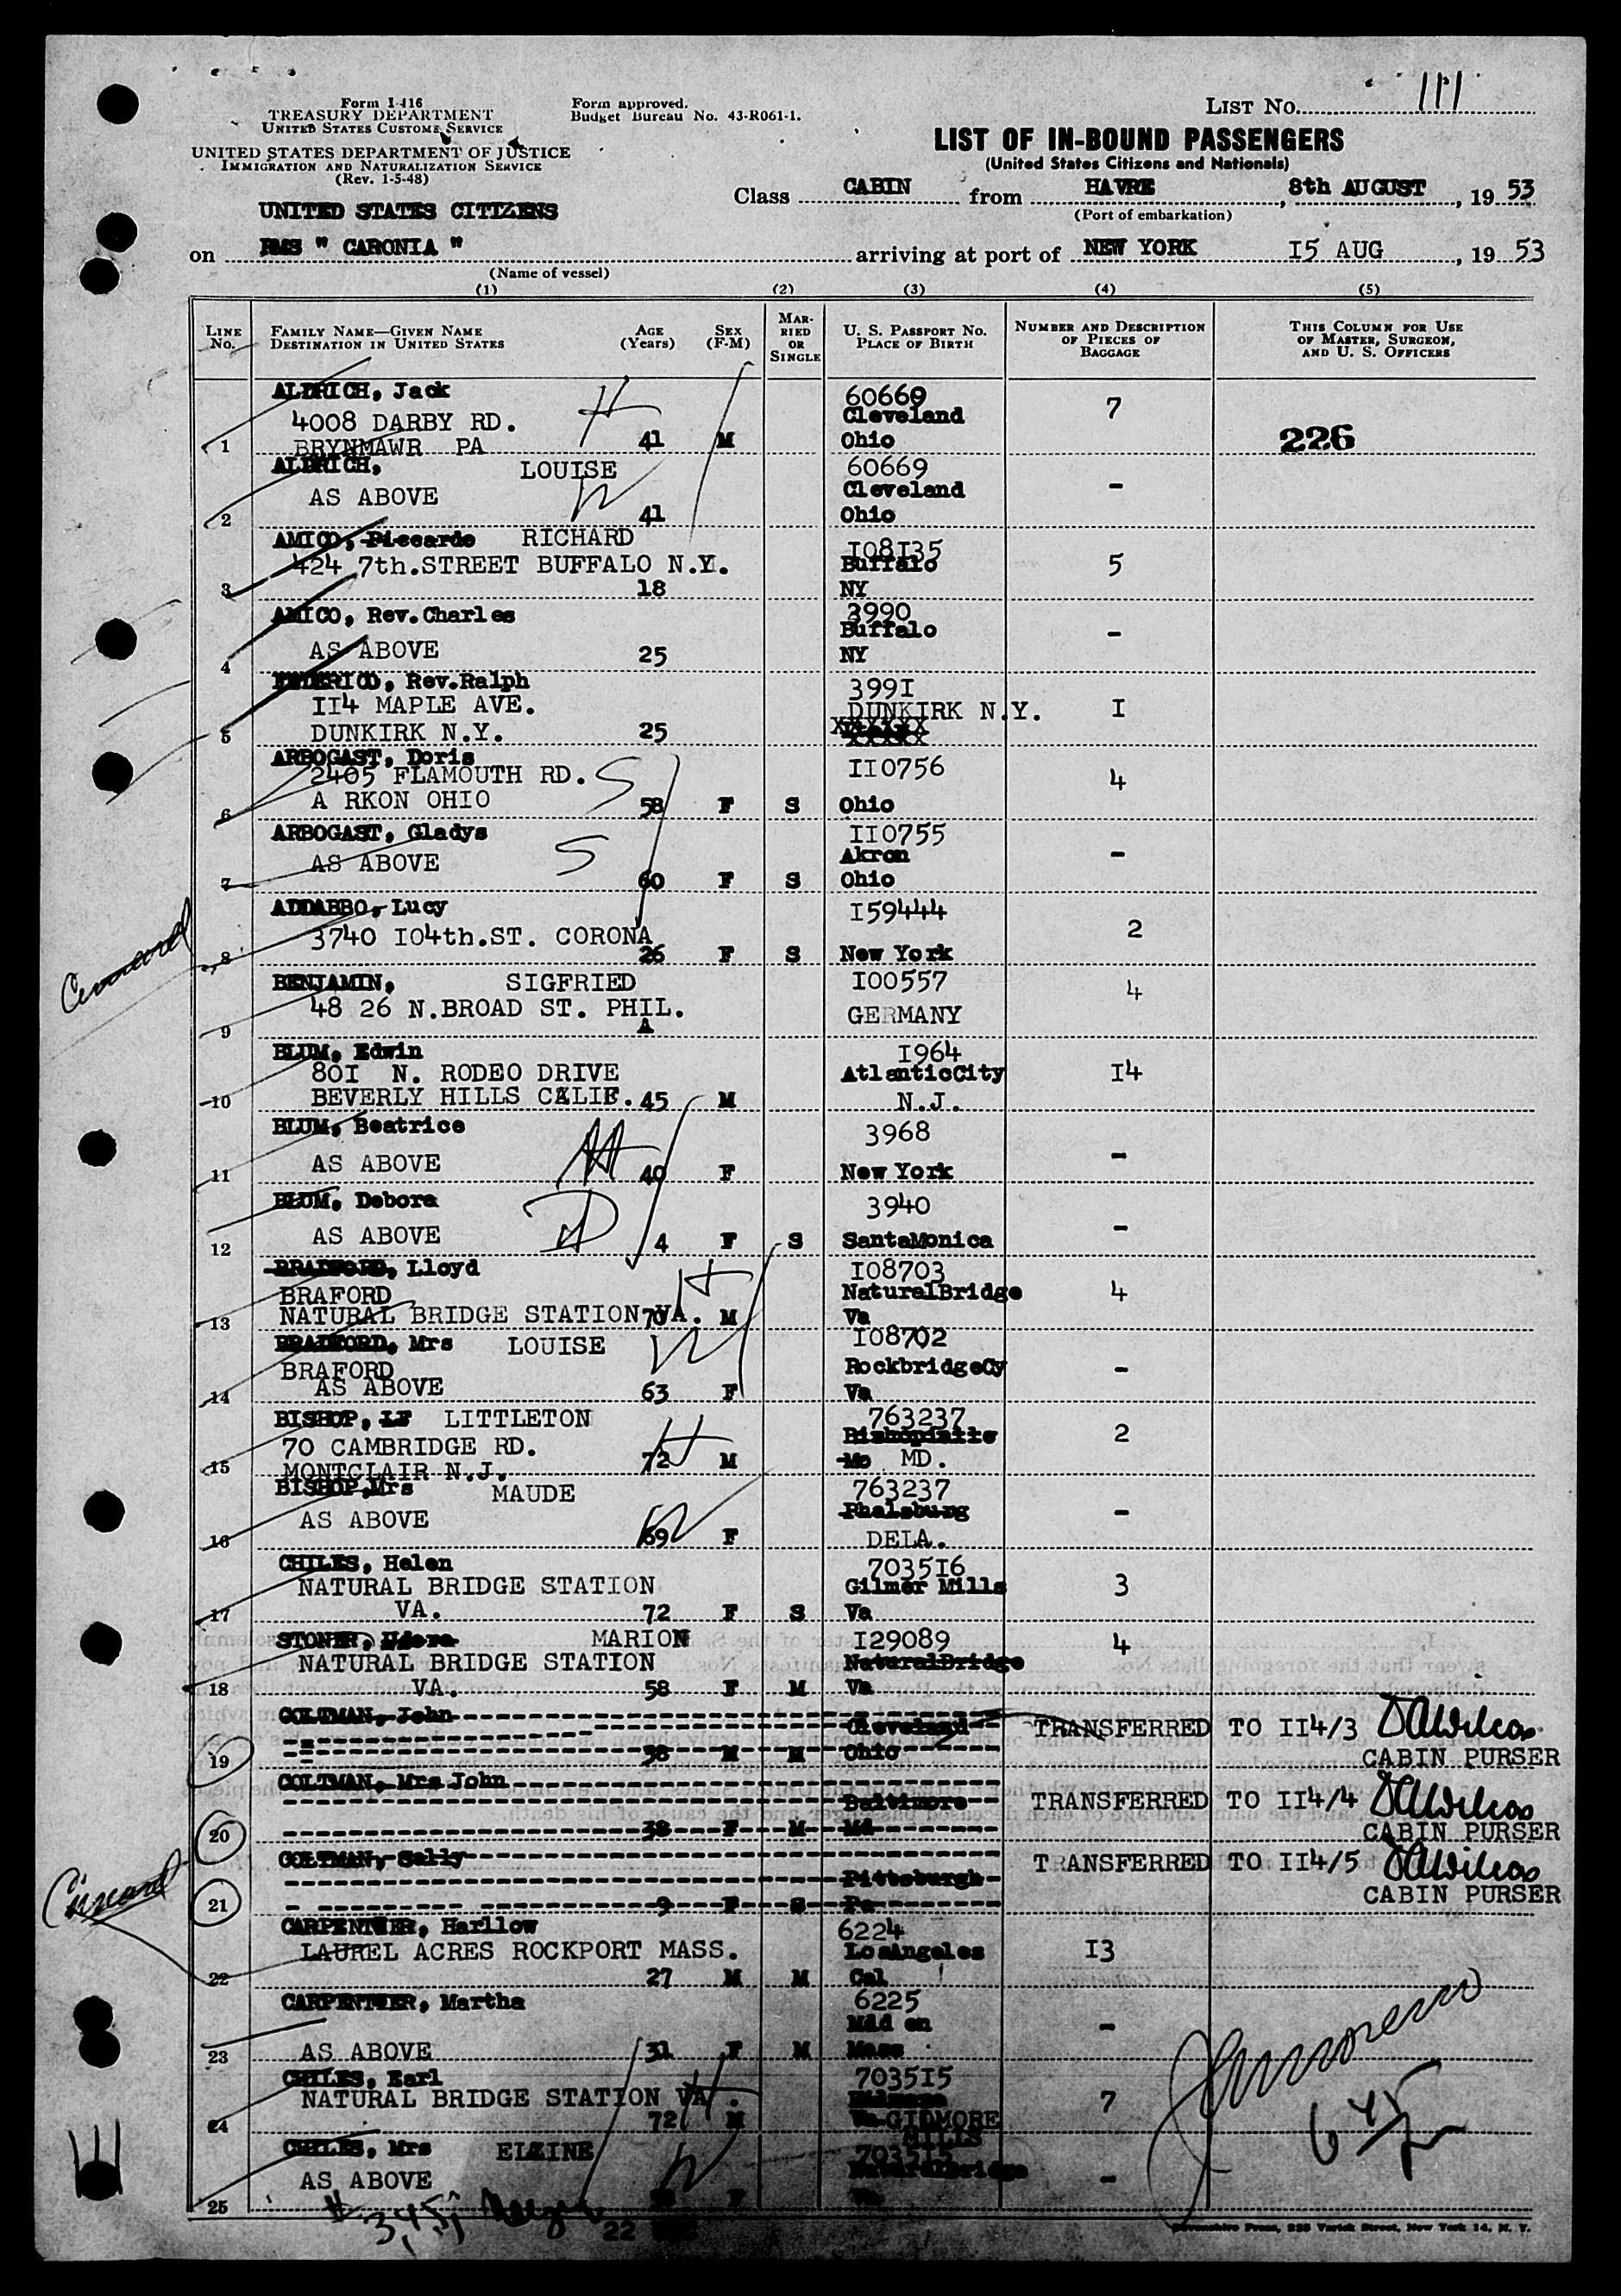 Form I-416
TREASURY DEPARTMENT
UNITED STATES CUSTOMS SERVICE
UNITED STATES DEPARTMENT OF JUSTICE
IMMIGRATION AND NATURALIZATION SERVICE
(Rev. 1-5-48)
Form approved.
Budget Bureau No. 43-R061-1.
LIST No. 111
LIST OF IN-BOUND PASSENGERS
(United States Citizens and Nationals)
Class CABIN from HAVRE, 8th AUGUST, 19 53
(Port of embarkation)
UNITED STATES CITIZENS
on RMS " CARONIA " arriving at port of NEW YORK 15 AUG, 19 53
(Name of vessel)
(1) (2) (3) (4) (5)
LINE No. FAMILY NAME—GIVEN NAME DESTINATION IN UNITED STATES AGE (Years) SEX (F-M) MARRIED OR SINGLE U. S. PASSPORT No. PLACE OF BIRTH NUMBER AND DESCRIPTION OF PIECES OF BAGGAGE THIS COLUMN FOR USE OF MASTER, SURGEON, AND U. S. OFFICERS
ALDRICH, Jack H 60669
4008 DARBY RD. Cleveland 7
1 BRYNMAWR PA 41 M Ohio 226
ALDRICH, LOUISE 60669
AS ABOVE W Cleveland -
2 41 Ohio
AMICO, Piccardo RICHARD I08I35
424 7th.STREET BUFFALO N.Y. Buffalo 5
3 18 NY
AMICO, Rev.Charles 3990
Buffalo -
4 AS ABOVE 25 NY
FEDERICO, Rev.Ralph 399I
II4 MAPLE AVE. DUNKIRK N.Y. I
5 DUNKIRK N.Y. 25 XXXXXX
ARBOGAST, Doris
2405 FLAMOUTH RD. S II0756 4
6 A RKON OHIO 58 F S Ohio
ARBOGAST, Gladys II0755
AS ABOVE S Akron -
7 60 F S Ohio
ADDABBO, Lucy I59444
3740 I04th.ST. CORONA 2
8 26 F S New York
BENJAMIN, SIGFRIED I00557 4
48 26 N.BROAD ST. PHIL. GERMANY
9 A
BLUM, Edwin I964
80I N. RODEO DRIVE AtlanticCity I4
10 BEVERLY HILLS CALIF. 45 M N.J.
BLUM, Beatrice 3968
AS ABOVE -
11 40 F New York
BLUM, Debora D 3940
AS ABOVE -
12 4 F S SantaMonica
BRADFORD, Lloyd H I08703
BRAFORD NaturalBridge 4
13 NATURAL BRIDGE STATION VA. 70 M Va
BRADFORD, Mrs LOUISE W I08702
BRAFORD RockbridgeCy -
14 AS ABOVE 63 F Va
BISHOP, LF LITTLETON 763237
70 CAMBRIDGE RD. H 2
15 MONTCLAIR N.J. 72 M Mo MD.
BISHOP,Mrs MAUDE 763237
AS ABOVE W Phalsburg -
16 69 F DELA.
CHILES, Helen 7035I6
NATURAL BRIDGE STATION Gilmer Mills 3
17 VA. 72 F S Va
STONER, MARION I29089 4
NATURAL BRIDGE STATION NaturalBridge
18 VA. 58 F M Va
COLTMAN, John Cleveland TRANSFERRED TO II4/3 DAWilcox
19 38 M M Ohio CABIN PURSER
COLTMAN, Mrs John Baltimore TRANSFERRED TO II4/4 DAWilcox
20 38 F M Md CABIN PURSER
COLTMAN, Sally Pittsburgh TRANSFERRED TO II4/5 DAWilcox
21 9 F S Pa CABIN PURSER
Cunard
CARPENTER, Harllow 6224
LAUREL ACRES ROCKPORT MASS. LosAngeles I3
22 27 M M Cal
CARPENTER, Martha 6225
-
23 AS ABOVE 31 F M Mass
CHILES, Earl 7035I5
NATURAL BRIDGE STATION VA. H 7
24 72 M Va GIDMORE MILLS
CHILES, Mrs ELAINE W 7035I5
AS ABOVE NaturalBridge -
25 F Va
22
Devonshire Press, 225 Varick Street, New York 14, N. Y.